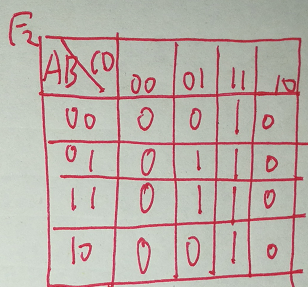 F2
AB CD 00 01 11 10
00 0 0 1 0
01 0 1 1 0
11 0 1 1 0
10 0 0 1 0